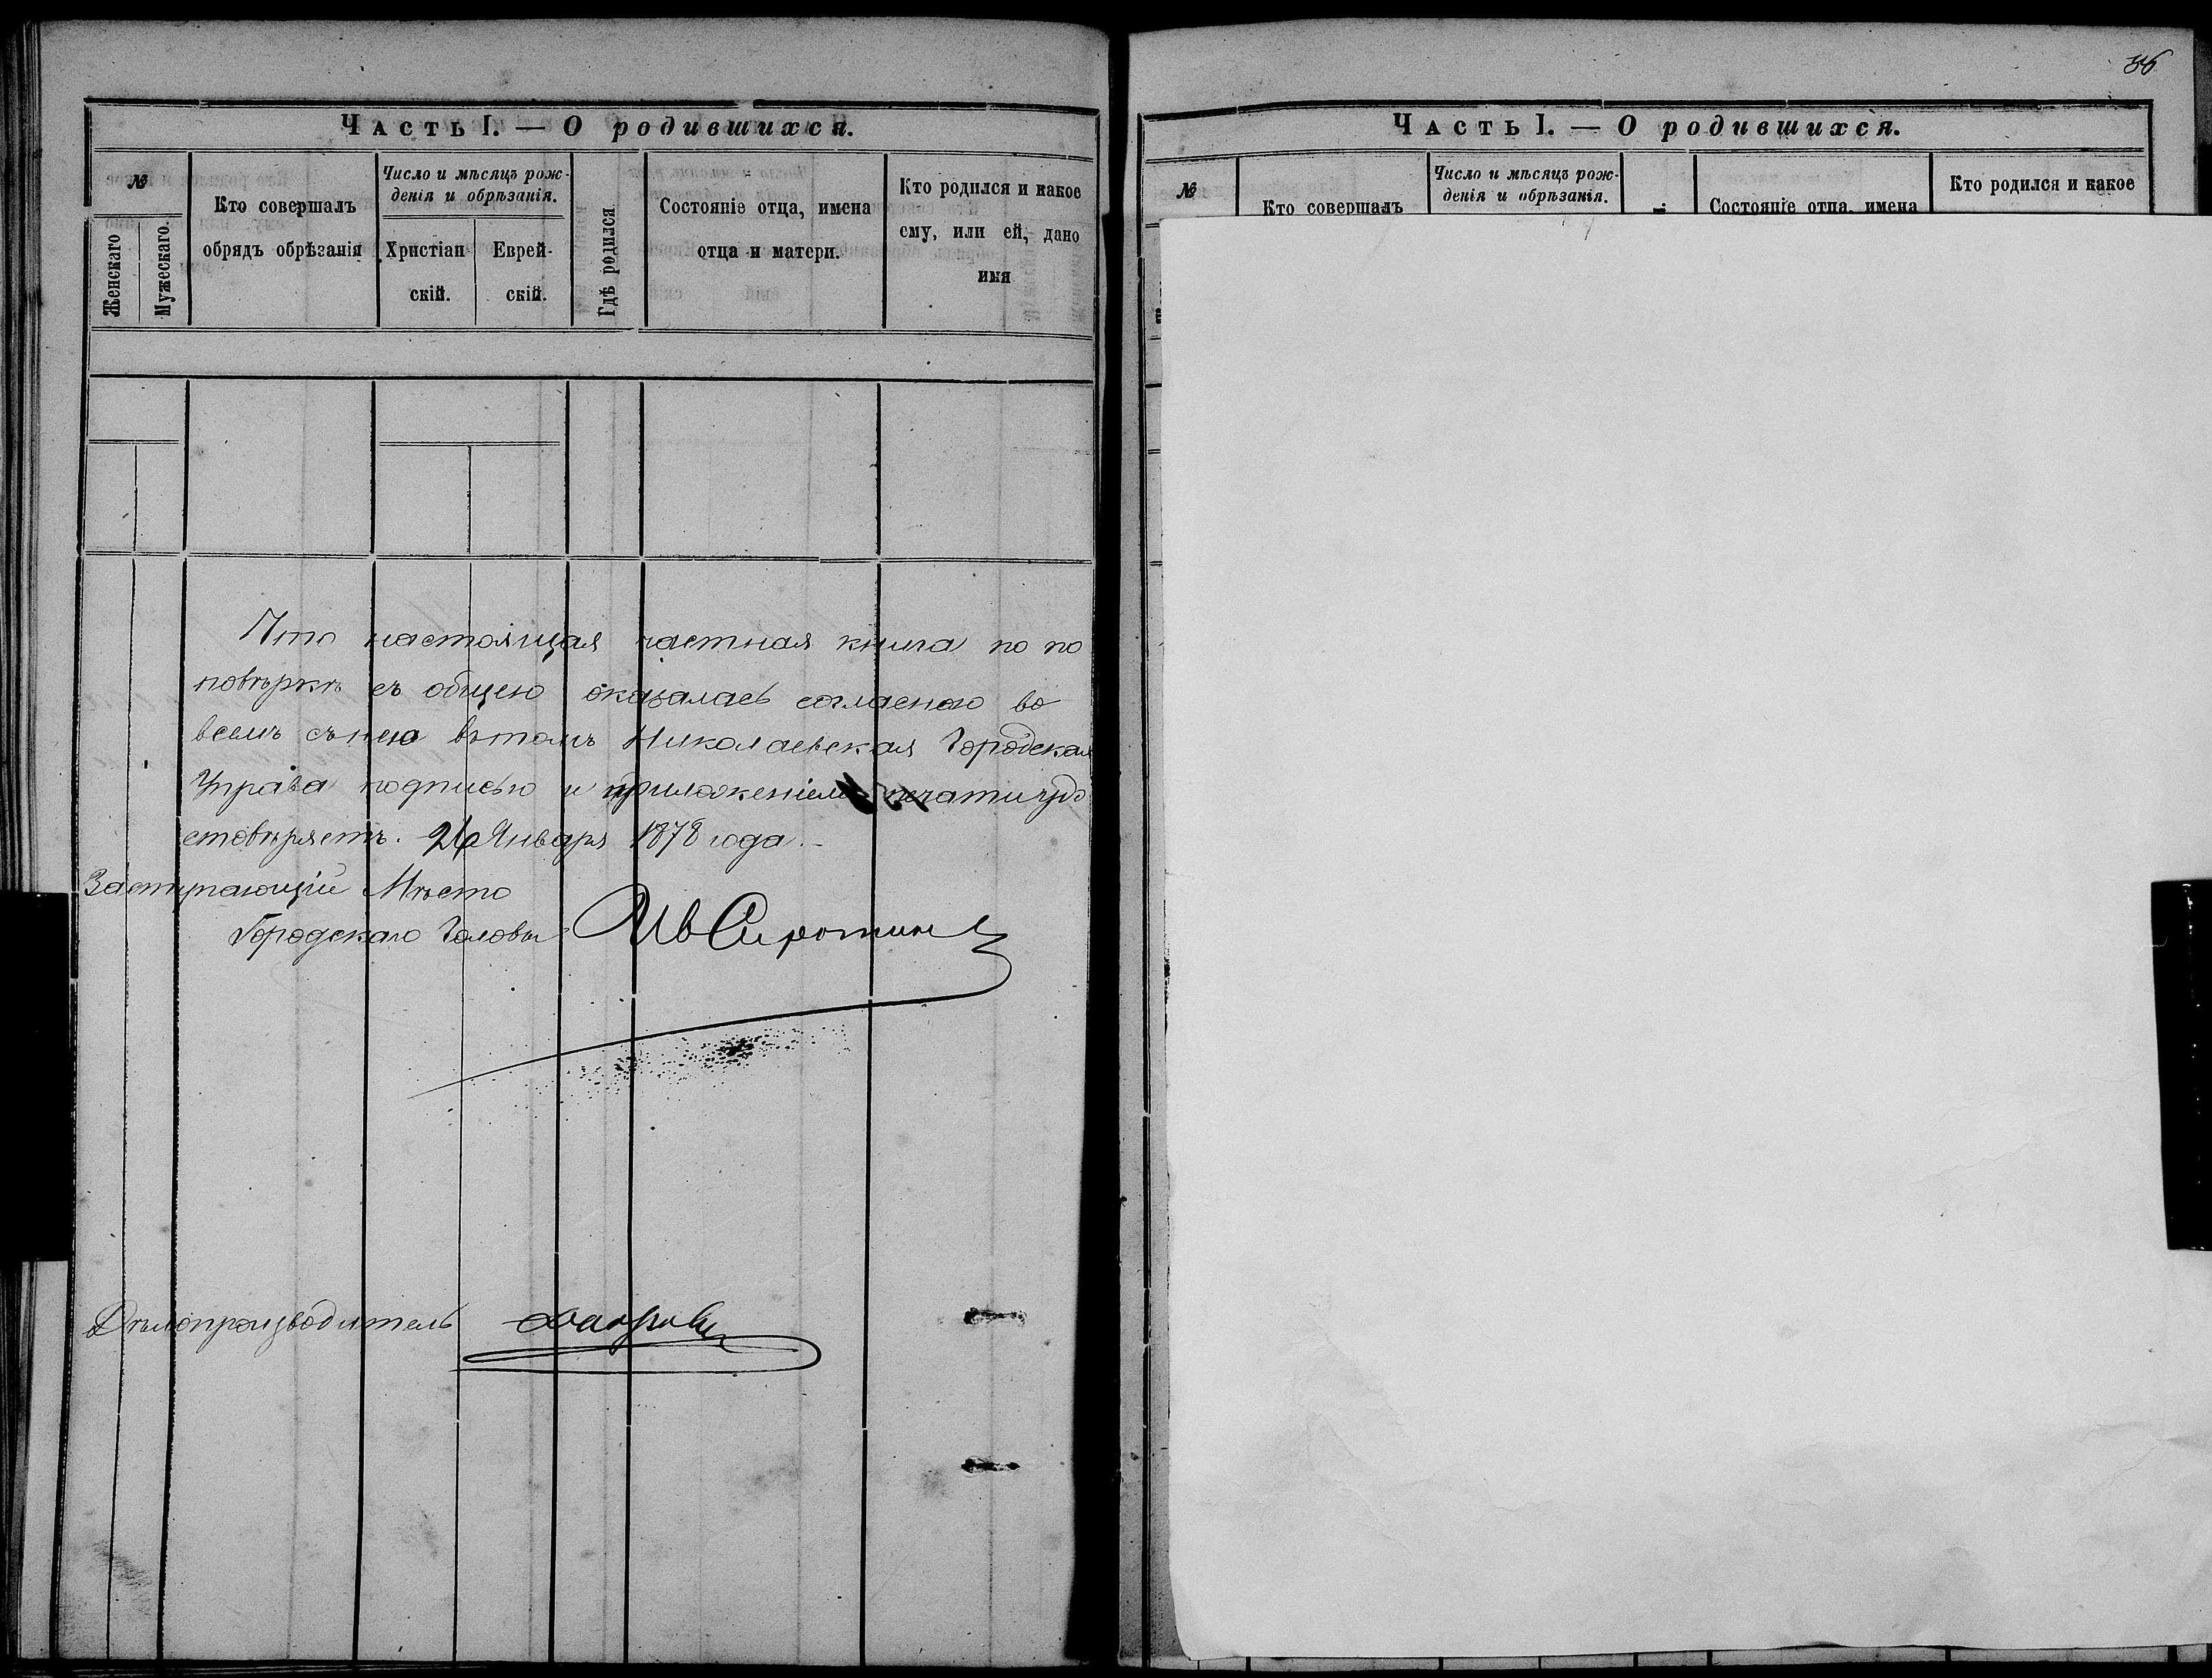 Часть I. — О родившихся.
№
Женскаго
Мужескаго.
Кто совершалъ
обрядъ обрѣзанія
Число и мѣсяцъ рож-
денія и обрѣзанія.
Христіан
скій.
Еврей-
скій.
Гдѣ родился
Состояніе отца, имена
отца и матери.
Кто родился и какое
ему, или ей, дано
имя
Что настоящая частная книга по по
повѣркѣ съ общею оказалась согласною во
всемъ съ нею вътомъ Николаевская Городская
Управа подписью и приложеніемъ печати удо
стовѣряетъ. 26 Января 1878 года.
Заступающій Мѣсто
Городскаго Головы Ив Сиротин
Дѣлопроизводитель
36
Часть I. — О родившихся.
№
Кто совершалъ
Число и мѣсяцъ рож-
денія и обрѣзанія.
Состояніе отца, имена
Кто родился и какое